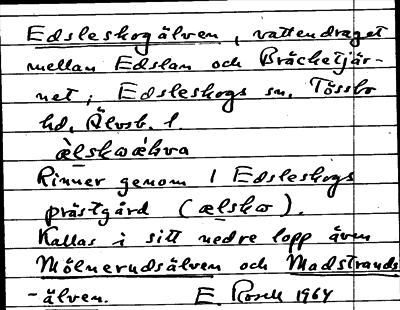 Edsleskogälven, vattendraget
mellan Edslan och Bräcketjär-
net, Edsleskogs sn. Tössbo
hd. Älvsb. l.
æ̀lskωǽlva
Rinner genom / Edsleskogs
prästgård (ælskω).
Kallas i sitt nedre lopp även
Mölnerudsälven och Madstrands
-älven. E. Rosell 1964